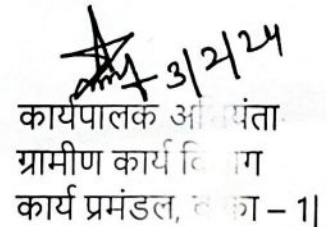 3/2/24
कार्यपालक
ग्रामीण कार्य
कार्य प्रमंडल, – 1|